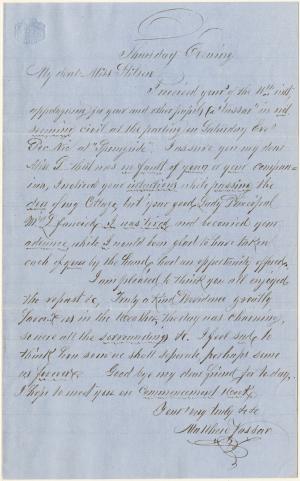 Thursday Evening
My dear Miss Stilson
I received yours of the 11th inst
appologising for your and other pupils of "Vassar" in not
seeming civil at the parting on Saturday Eve'
Dec No' at "Springside". I assure you my dear
Miss S that was no fault of young or your compan-
ions, I noticed your intentions while passing the
door of my Cottage, but your good Lady Principal
Miss L fancied I was tired and hurried your
advance, while I would been glad to have taken
each of you by the hand, had an opportunity offered.
I am pleased to think you all enjoyed
the repast &c, Truly a kind Providence greatly
favored us in the Weather, the day was charming,
so were all the surrounding &c. I feel sad, to
think how soon we shall seperate perhaps some
us forever. Good bye my dear friend for to day,
I hope to meet you on Commencement Week,
Your's my truly &c &c
Matthew Vassar